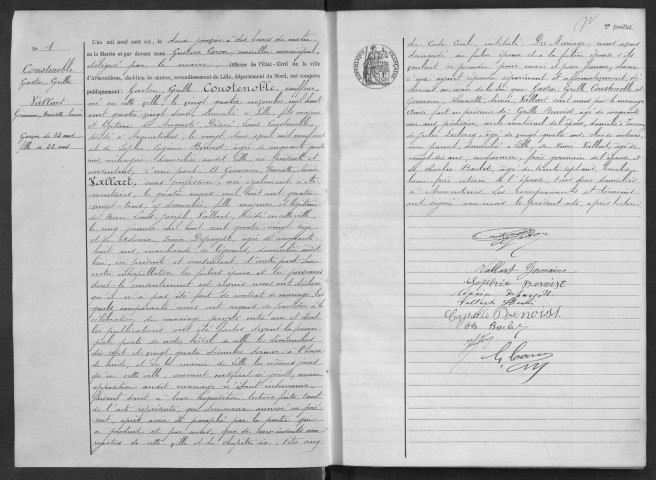 N° 1
Coustenoble
Gaston, Cyrille
&
Vallart
Germaine, Henriette, Aimée
Garçon de 22 ans
fille de 22 ans
L'an mil neuf cent six, le deux janvier à dix heures du matin,
en la Mairie et par devant nous Gustave Caron, conseiller municipal,
délégué par le maire, Officier de l'Etat-Civil de la ville
d'Armentières, chef-lieu de canton, arrondissement de Lille, département du Nord, ont comparu
publiquement: Gaston, Cyrille Coustenoble,
né en cette ville, le vingt quatre novembre mil huit
cent quatre vingt domicilié à Lille, fils majeur
et légitime de Auguste, Désiré Coustenoble,
décédé à Armentières, le vingt deux avril mil neuf cent
et de Sophie, Eugénie Benoist, âgée de cinquante
ans, ménagère, domiciliée audit Lille, ici présente et
consentante, d'une part. Et Germaine, Henriette, Aimée
Vallart, sans profession, née également à Ar-
mentières, le quatre mars mil huit cent quatre
vingt-trois, y domiciliée, fille majeure et légitime
de Henri, Louis, Joseph Vallart, décédé en cette ville,
le cinq janvier mil huit cent quatre vingt dix
et de Sidonie, ans, marchande de légumes, domiciliée audit
lieu, ici présente et consentante, d'autre part. Sur
notre interpellation les futurs époux et les personnes
dont le consentement est requis nous ont déclaré
qu'il n'a pas été fait de contrat de mariage. Les-
quels comparants nous ont requis de procéder à la
célébration du mariage projeté entre eux et dont
les publications ont été faites devant la princi-
pale porte de notre hôtel de ville les dimanches
dix sept et vingt quatre décembre dernier à l'heure
de midi, et en la mairie de Lille les mêmes jours
aucune
opposition audit mariage n'étant intervenue,
faisant droit à leur réquisition, lecture faite tant
de l'acte représenté, qui demeurera annexé au pré-
sent, après avoir été paraphé par la partie qui
l'a produit et par nous, que de ceux inscrits aux
registres de cette ville et du chapitre six, titre cinq
2e feuillet.
du Code Civil, intitulé: Du Mariage, nous avons
demandé au futur époux et à la future épouse s'ils
veulent se prendre pour mari et pour femme, chacun
d'eux ayant répondu séparément et affirmativement, dé-
clarons au nom de la loi que Gaston, Cyrille Coustenoble et
Germaine, Henriette, Aimée, Vallart sont unis par le mariage
dont acte, en présence de: Cyrille Benoist, âgé de cinquante
Jules Leclercq, âgé de vingt quatre ans,
non parent, domicilié à Lille, de Henri Vallart, âgé de
vingt six ans, cordonnier, frère germain de l'épouse et
de Charles Baclet, âgé de trente sept ans,
à Armentières. Les comparants et témoins
ont signé avec nous le présent acte, après lecture.
Vallart Germaine
Sophie Benoist
Vallart Henri
Cyrille Benoist
Ch. Baclet
G. Caron